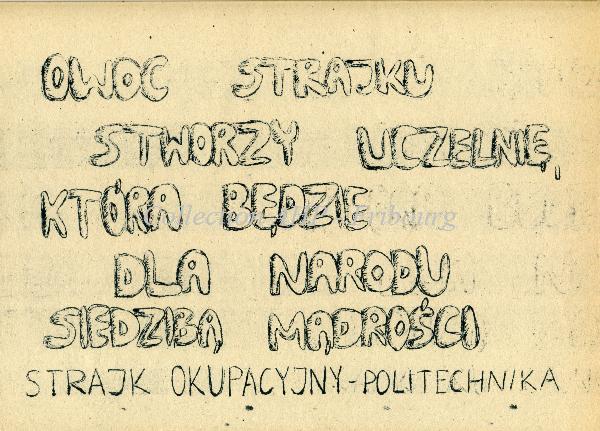 OWOC STRAJKU
STWORZY UCZELNIĘ,
KTÓRA BĘDZIE
DLA NARODU
SIEDZIBĄ MĄDROŚCI
STRAJK OKUPACYJNY-POLITECHNIKA